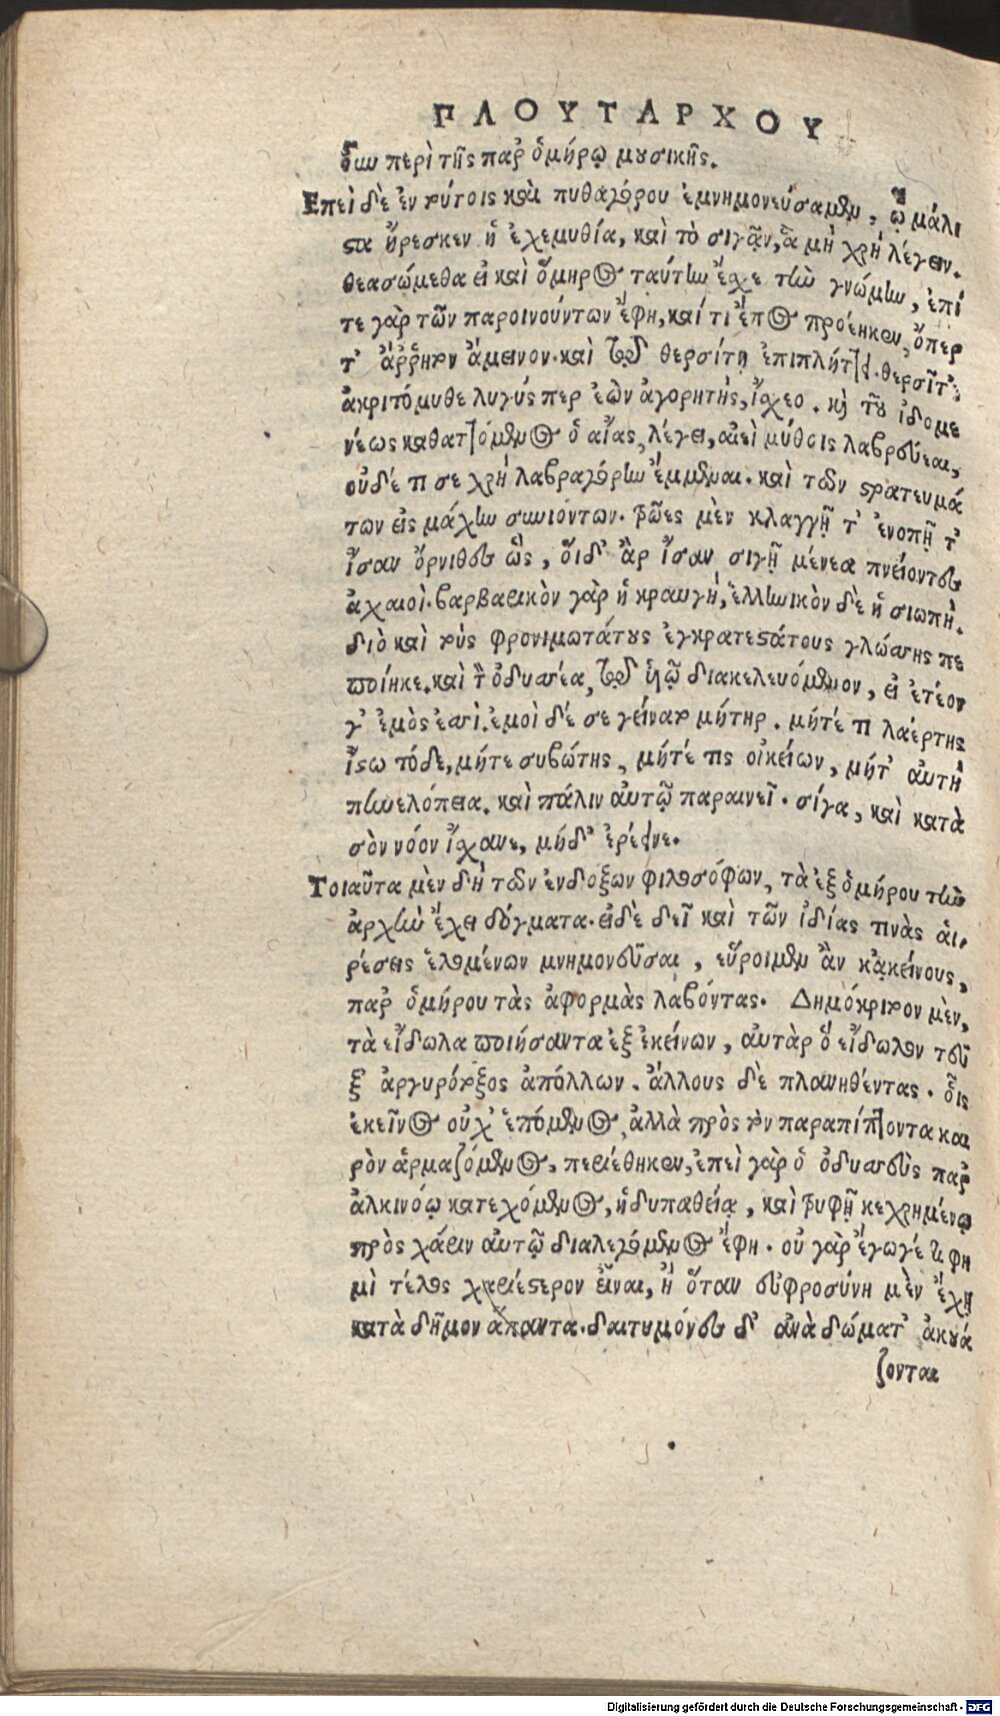 ΠΛΟΥΤΑΡΧΟΥ
δω περὶ τῆς παρ' ὁμήρῳ μουσικῆς.
Επεὶ δὲ ἐν τούτοις καὶ πυθαγόρου ἐμνημονεύσαμεν, ᾧ μάλι
στα ἤρεσκεν ἡ ἐχεμυθία, καὶ τὸ σιγᾷν, ἃ μὴ χρὴ λέγειν.
θεασώμεθα εἰ καὶ ὅμηρος ταύτην ἔχε τὴν γνώμην, ἐπί
τε γὰρ τῶν παροινούντων ἔφη, καί τι ἔπος προέηκεν, ὅπερ
τ' ἄῤῥητον ἄμεινον. καὶ τῷ θερσίτῃ ἐπιπλήττει. θερσῖτ'
ἀκριτόμυθε λιγύς περ ἐὼν ἀγορητὴς, ἴσχεο. καὶ τοῦ ἰδομε
νέως καθαπτόμενος ὁ αἴας, λέγει, αἰεὶ μύθοις λαβρεύεαι,
οὐδέ τι σε χρὴ λαβραγόρην ἔμμεναι. καὶ τῶν στρατευμά
των εἰς μάχην συνιόντων. τρῶες μὲν κλαγγῇ τ' ἐνοπῇ τ'
ἴσαν ὄρνιθες ὣς, οἵδ' ἂρ ἴσαν σιγῇ μένεα πνείοντες
ἀχαιοί. βαρβαρικὸν γὰρ ἡ κραυγὴ, ἑλληνικὸν δὲ ἡ σιωπή.
διὸ καὶ τοὺς φρονιμωτάτους ἐγκρατεστάτους γλώσσης πε
ποίηκε. καὶ τὸν ὀδυσσέα, τῷ ἡῷ διακελευόμενον, εἰ ἐτέον
γ' ἐμὸς ἐσσὶ. ἐμοὶ δέ σε γείνατο μήτηρ. μήτέ τι λαέρτης
ἴστω τόδε, μήτε συβώτης, μήτέ τις οἰκείων, μήτ' αὐτὴ
πηνελόπεια. καὶ πάλιν αὐτῷ παραινεῖ. σίγα, καὶ κατὰ
σὸν νόον ἴσχανε, μήδ' ἐρέεινε.
Τοιαῦτα μὲν δὴ τῶν ἐνδόξων φιλοσόφων, τὰ ἐξ ὁμήρου τὴν
ἀρχὴν ἔχει δόγματα. εἰ δὲ δεῖ καὶ τῶν ἰδίας τινὰς αἱ-
ρέσεις ἑλομένων μνημονεῦσαι, εὕροιμεν ἂν κᾀκείνους,
παρ' ὁμήρου τὰς ἀφορμὰς λαβόντας. Δημόκριτον μὲν,
τὰ εἴδωλα ποιήσαντα ἐξ ἐκείνων, αὐτὰρ ὃ εἴδωλον τεῦ
ξ' ἀργυρότοξος ἀπόλλων. ἄλλους δὲ πλανηθέντας. οἷς
ἐκεῖνος οὐχ' ἑπόμενος, ἀλλὰ πρὸς τὸν παραπίπτοντα και
ρὸν ἁρμαζόμενος, περιέθηκεν, ἐπεὶ γὰρ ὁ ὀδυσσεὺς παρ'
ἀλκινόῳ κατεχόμενος, ἡδυπαθείᾳ, καὶ τρυφῇ κεχρημένῳ
πρὸς χάριν αὐτῷ διαλεγόμενος ἔφη. οὐ γὰρ ἔγωγέ τι φη
μὶ τέλος χαριέστερον εἶναι, ἢ ὅταν εὐφροσύνη μὲν ἔχῃ
κατὰ δῆμον ἅπαντα. δαιτυμόνες δ' ἀνὰ δώματ' ἀκουά
ζονται